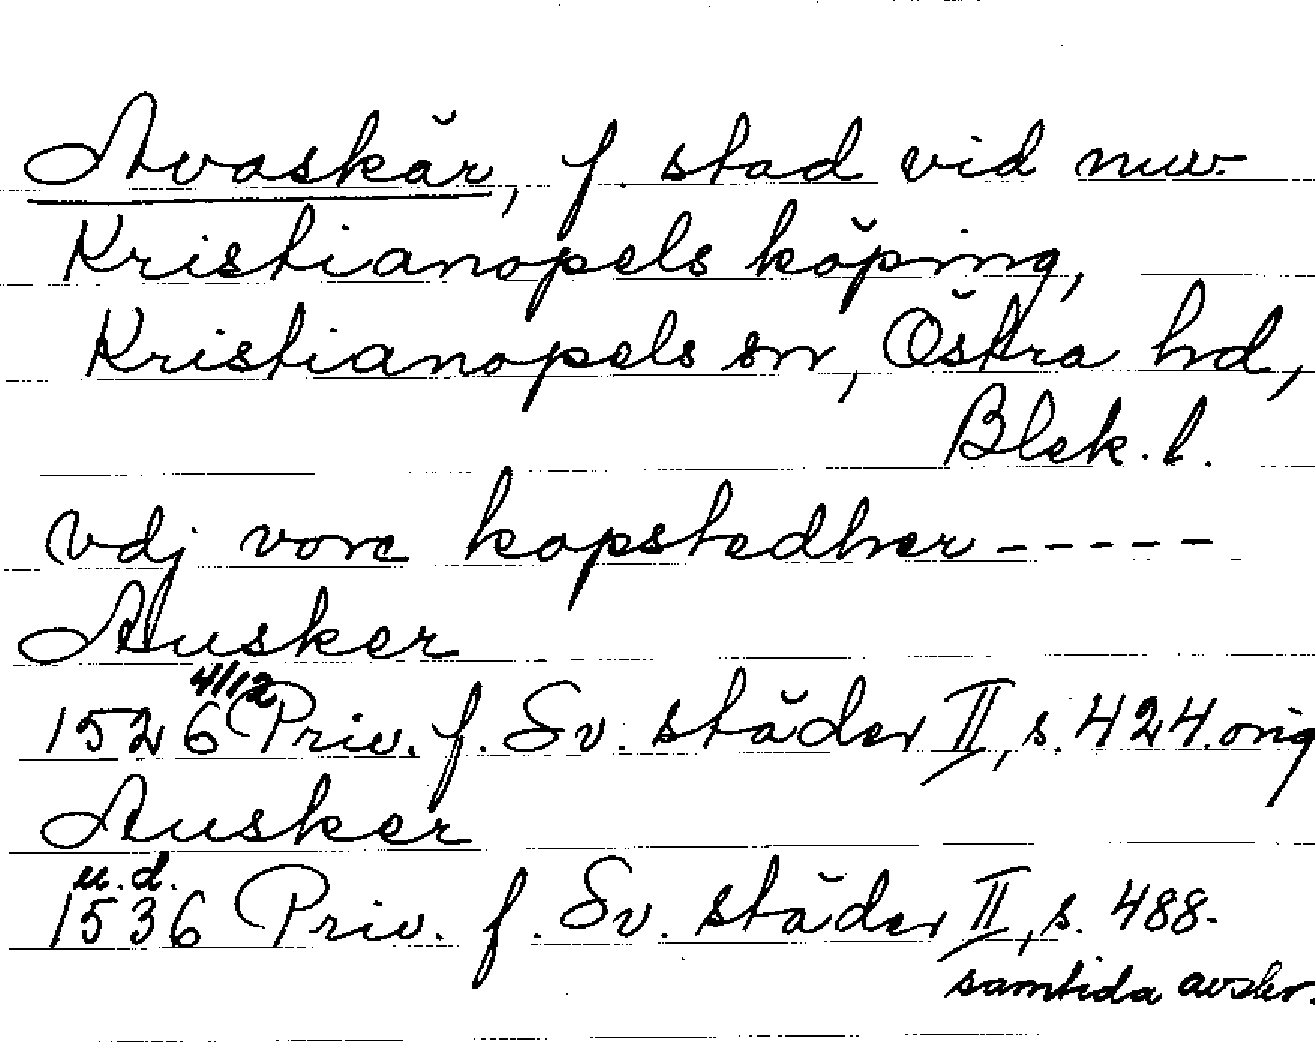 Avaskär, f. stad vid nuv.
Kristianopels köping,
Kristianopels sn, Östra hd,
Blek. l.
Vdj vore kopstedher -----
Ausker
4/12
1526 Priv. f. Sv. städer II, s. 424. orig
Ausker
u. d.
1536 Priv. f. Sv. städer II, s. 488.
samtida avskr.